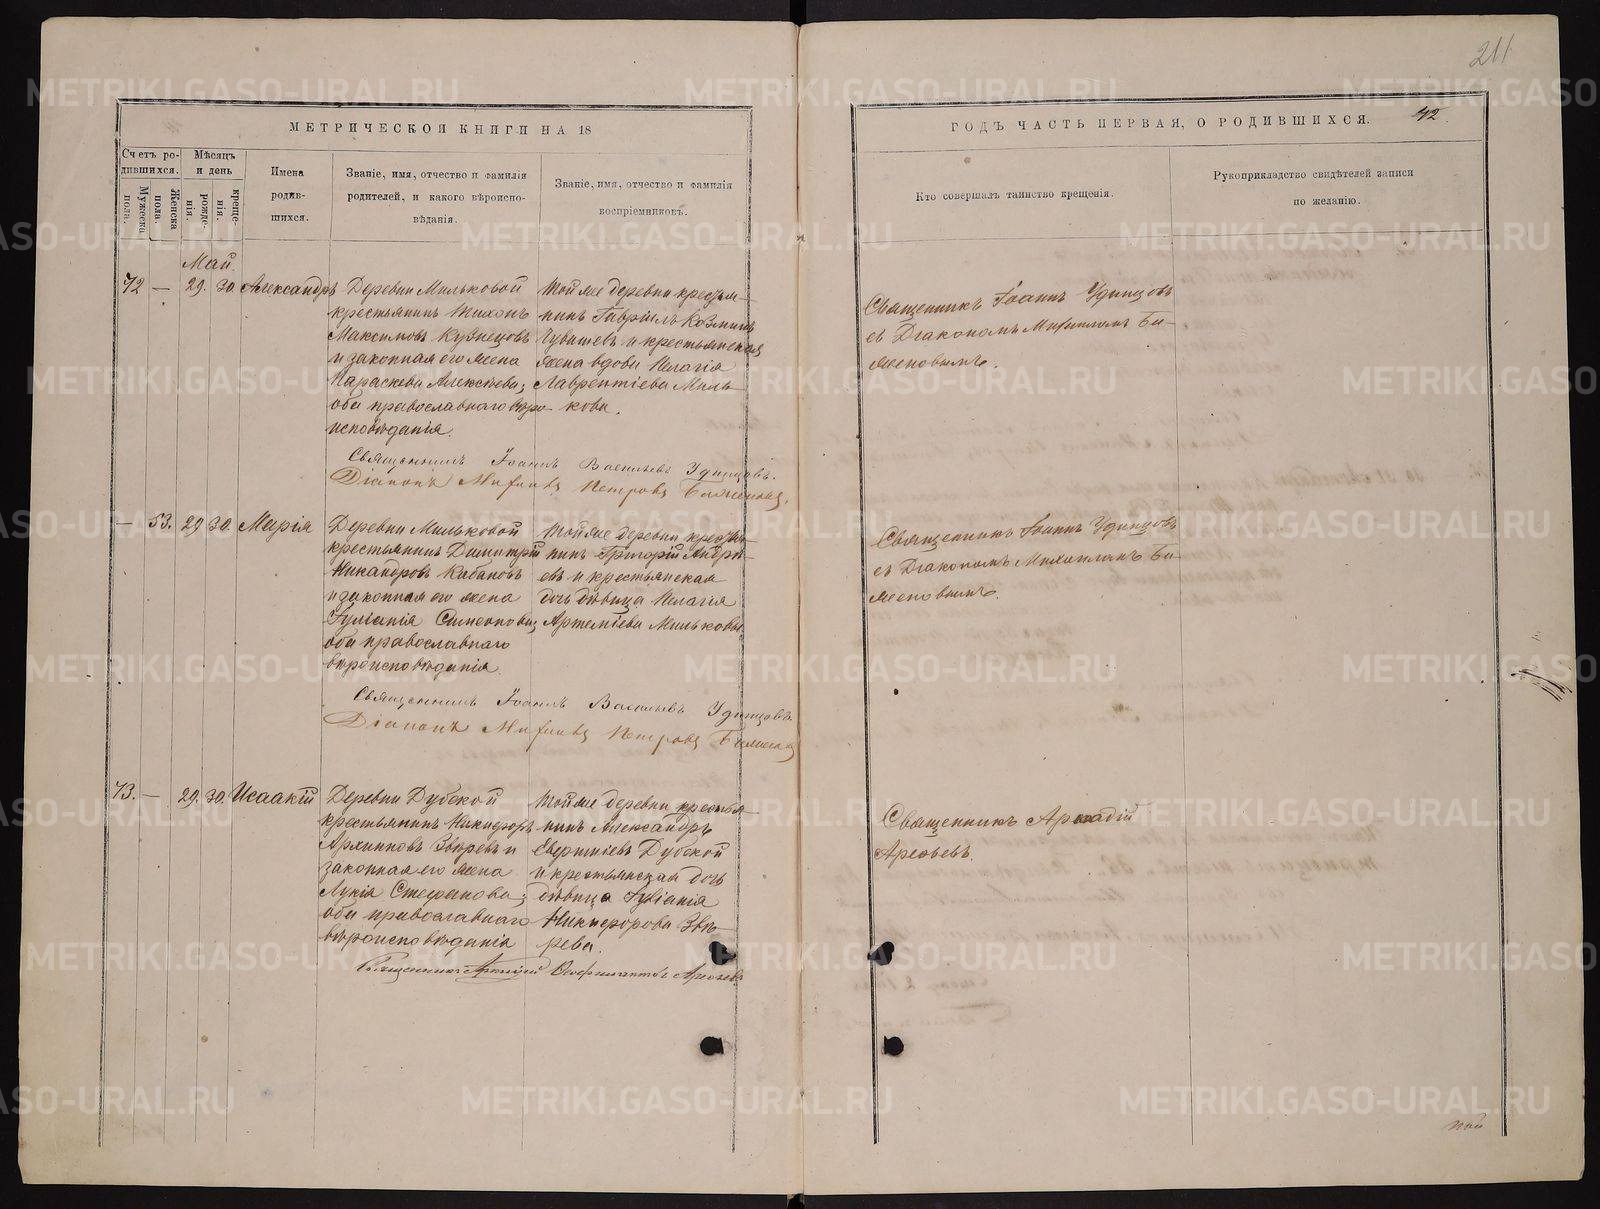 211
МЕТРИЧЕСКОЙ КНИГИ НА 18
ГОДЪ ЧАСТЬ ПЕРВАЯ, О РОДИВШИХСЯ.
42.
Счетъ ро-
дившихся.
Мужеска
пола.
Женска
пола.
Мѣсяцъ
и день
рожде-
нія.
креще-
нія.
Имена
родив-
шихся.
Званіе, имя, отчество и фамилія
родителей, и какого вѣроиспо-
вѣданія.
Званіе, имя, отчество и фамилія
воспріемниковъ.
Кто совершалъ таинство крещенія.
Рукоприкладство свидѣтелей записи
по желанію.
Май.
72 — 29. 30. Александръ
Деревни Мильковой
крестьянинъ Тихонъ
Максимовъ Кузнецовъ
и законная его жена
Параскева Алексѣева;
оба православнаго вѣро-
исповѣданія.
Той же деревни крестья-
нинъ Гавріилъ Козминъ
Чувашевъ и крестьянская
жена вдова Пелагія
Лаврентіева Миль-
кова.
Священникъ Іоаннъ Удинцовъ
съ Діакономъ
Священникъ Іоаннъ Васильевъ Удинцовъ.
Діаконъ Петровъ
— 53. 29 30. Марія
Деревни Мильковой
крестьянинъ Димитрій
Никандровъ Кабановъ
и законная его жена
Іуліанія Симеонова;
оба православнаго
вѣроисповѣданія.
Той же деревни крестья-
нинъ Григорій Андре-
евъ и крестьянская
дочь дѣвица Пелагія
Артеміева Милькова.
Священникъ Іоаннъ Удинцовъ
съ Діакономъ
Священникъ Іоаннъ Васильевъ Удинцовъ.
Діаконъ Петровъ
73. — 29. 30. Исаакій
Деревни Дубской
крестьянинъ Никифоръ
Архиповъ Звѣревъ и
законная его жена
Лукія Стефанова;
оба православнаго
вѣроисповѣданія
Той же деревни крестья-
нинъ Александръ
Дубской
и крестьянская дочь
дѣвица Іуліанія
Никифорова Звѣ-
рева.
Священникъ Аркадій
Арефьевъ.
Священникъ Аркадій Арефьевъ
METRIKI.GASO-URAL.RU